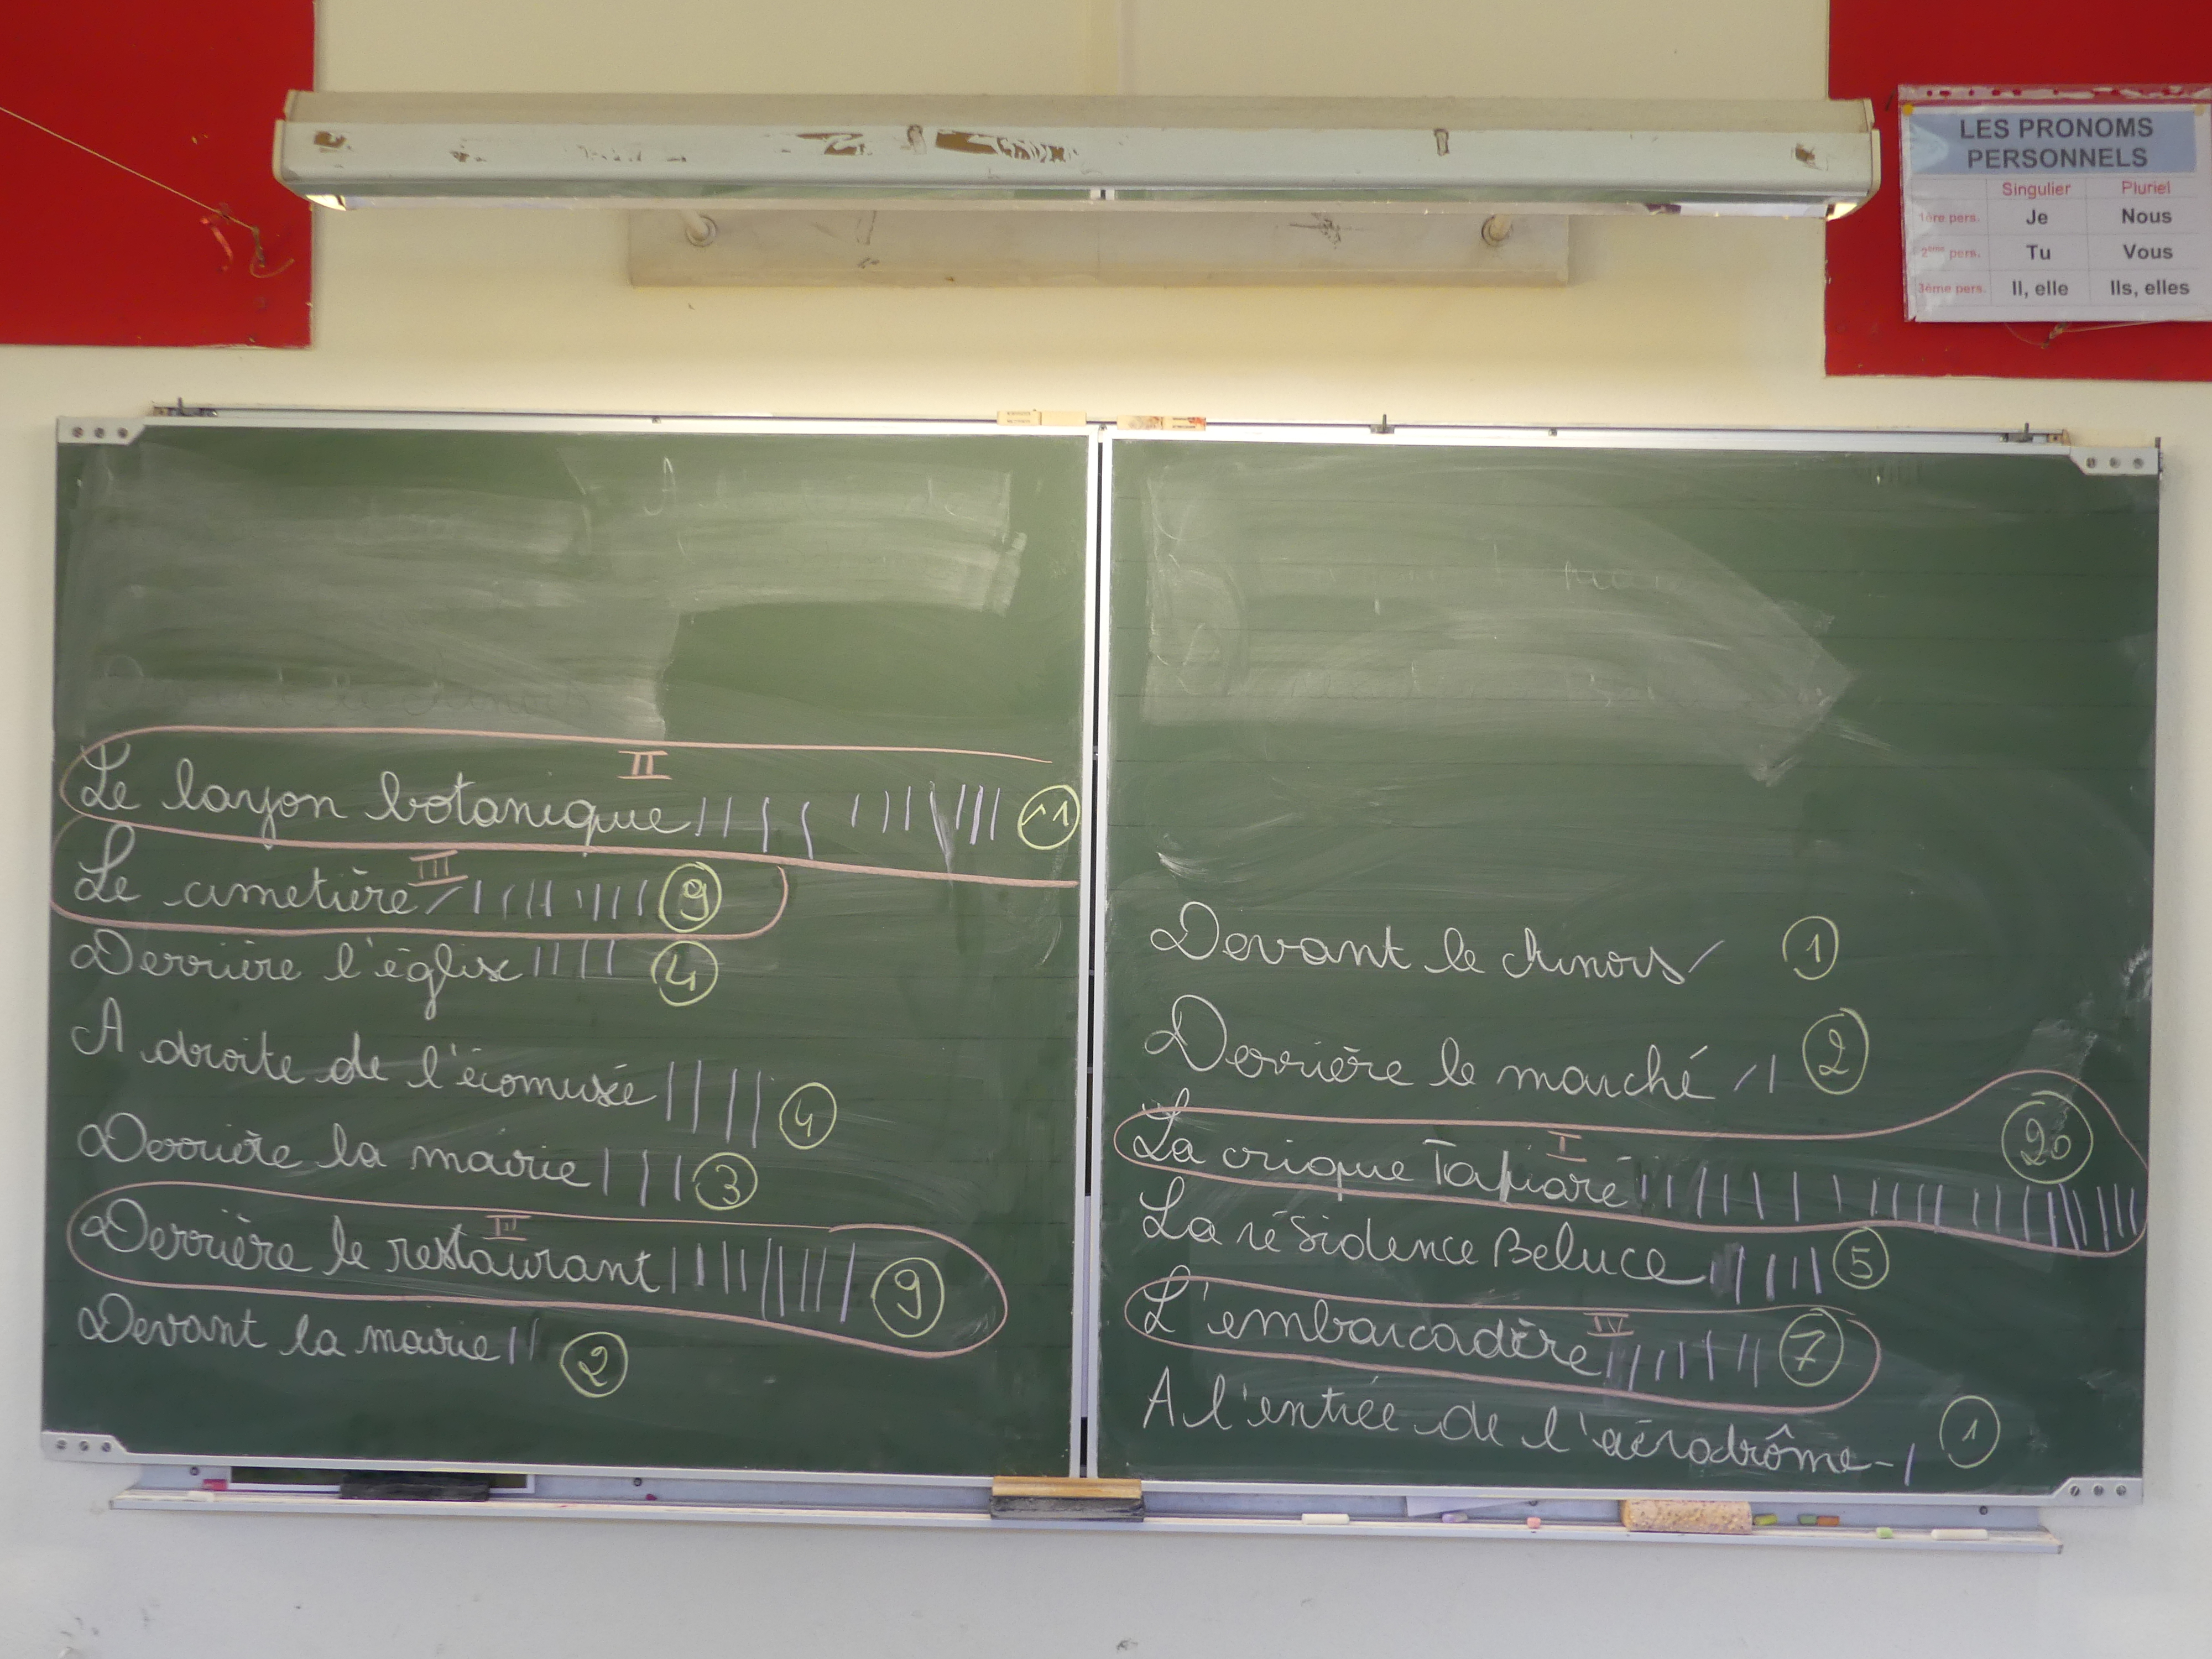 LES PRONOMS
PERSONNELS
Singulier Pluriel
1ère pers. Je Nous
2ème pers. Tu Vous
3ème pers. Il, elle Ils, elles
II
Le layon botanique 11
III
Le cimetière 9
Derrière l'église 4
A droite de l'écomusée 4
Derrière la mairie 3
III
Derrière le restaurant 9
Devant la mairie 2
Devant le chinois 1
Derrière le marché 2
I
La crique Tapiaré 20
La résidence Beluce 5
IV
L'embarcadère 7
A l'entrée de l'aérodrôme - 1